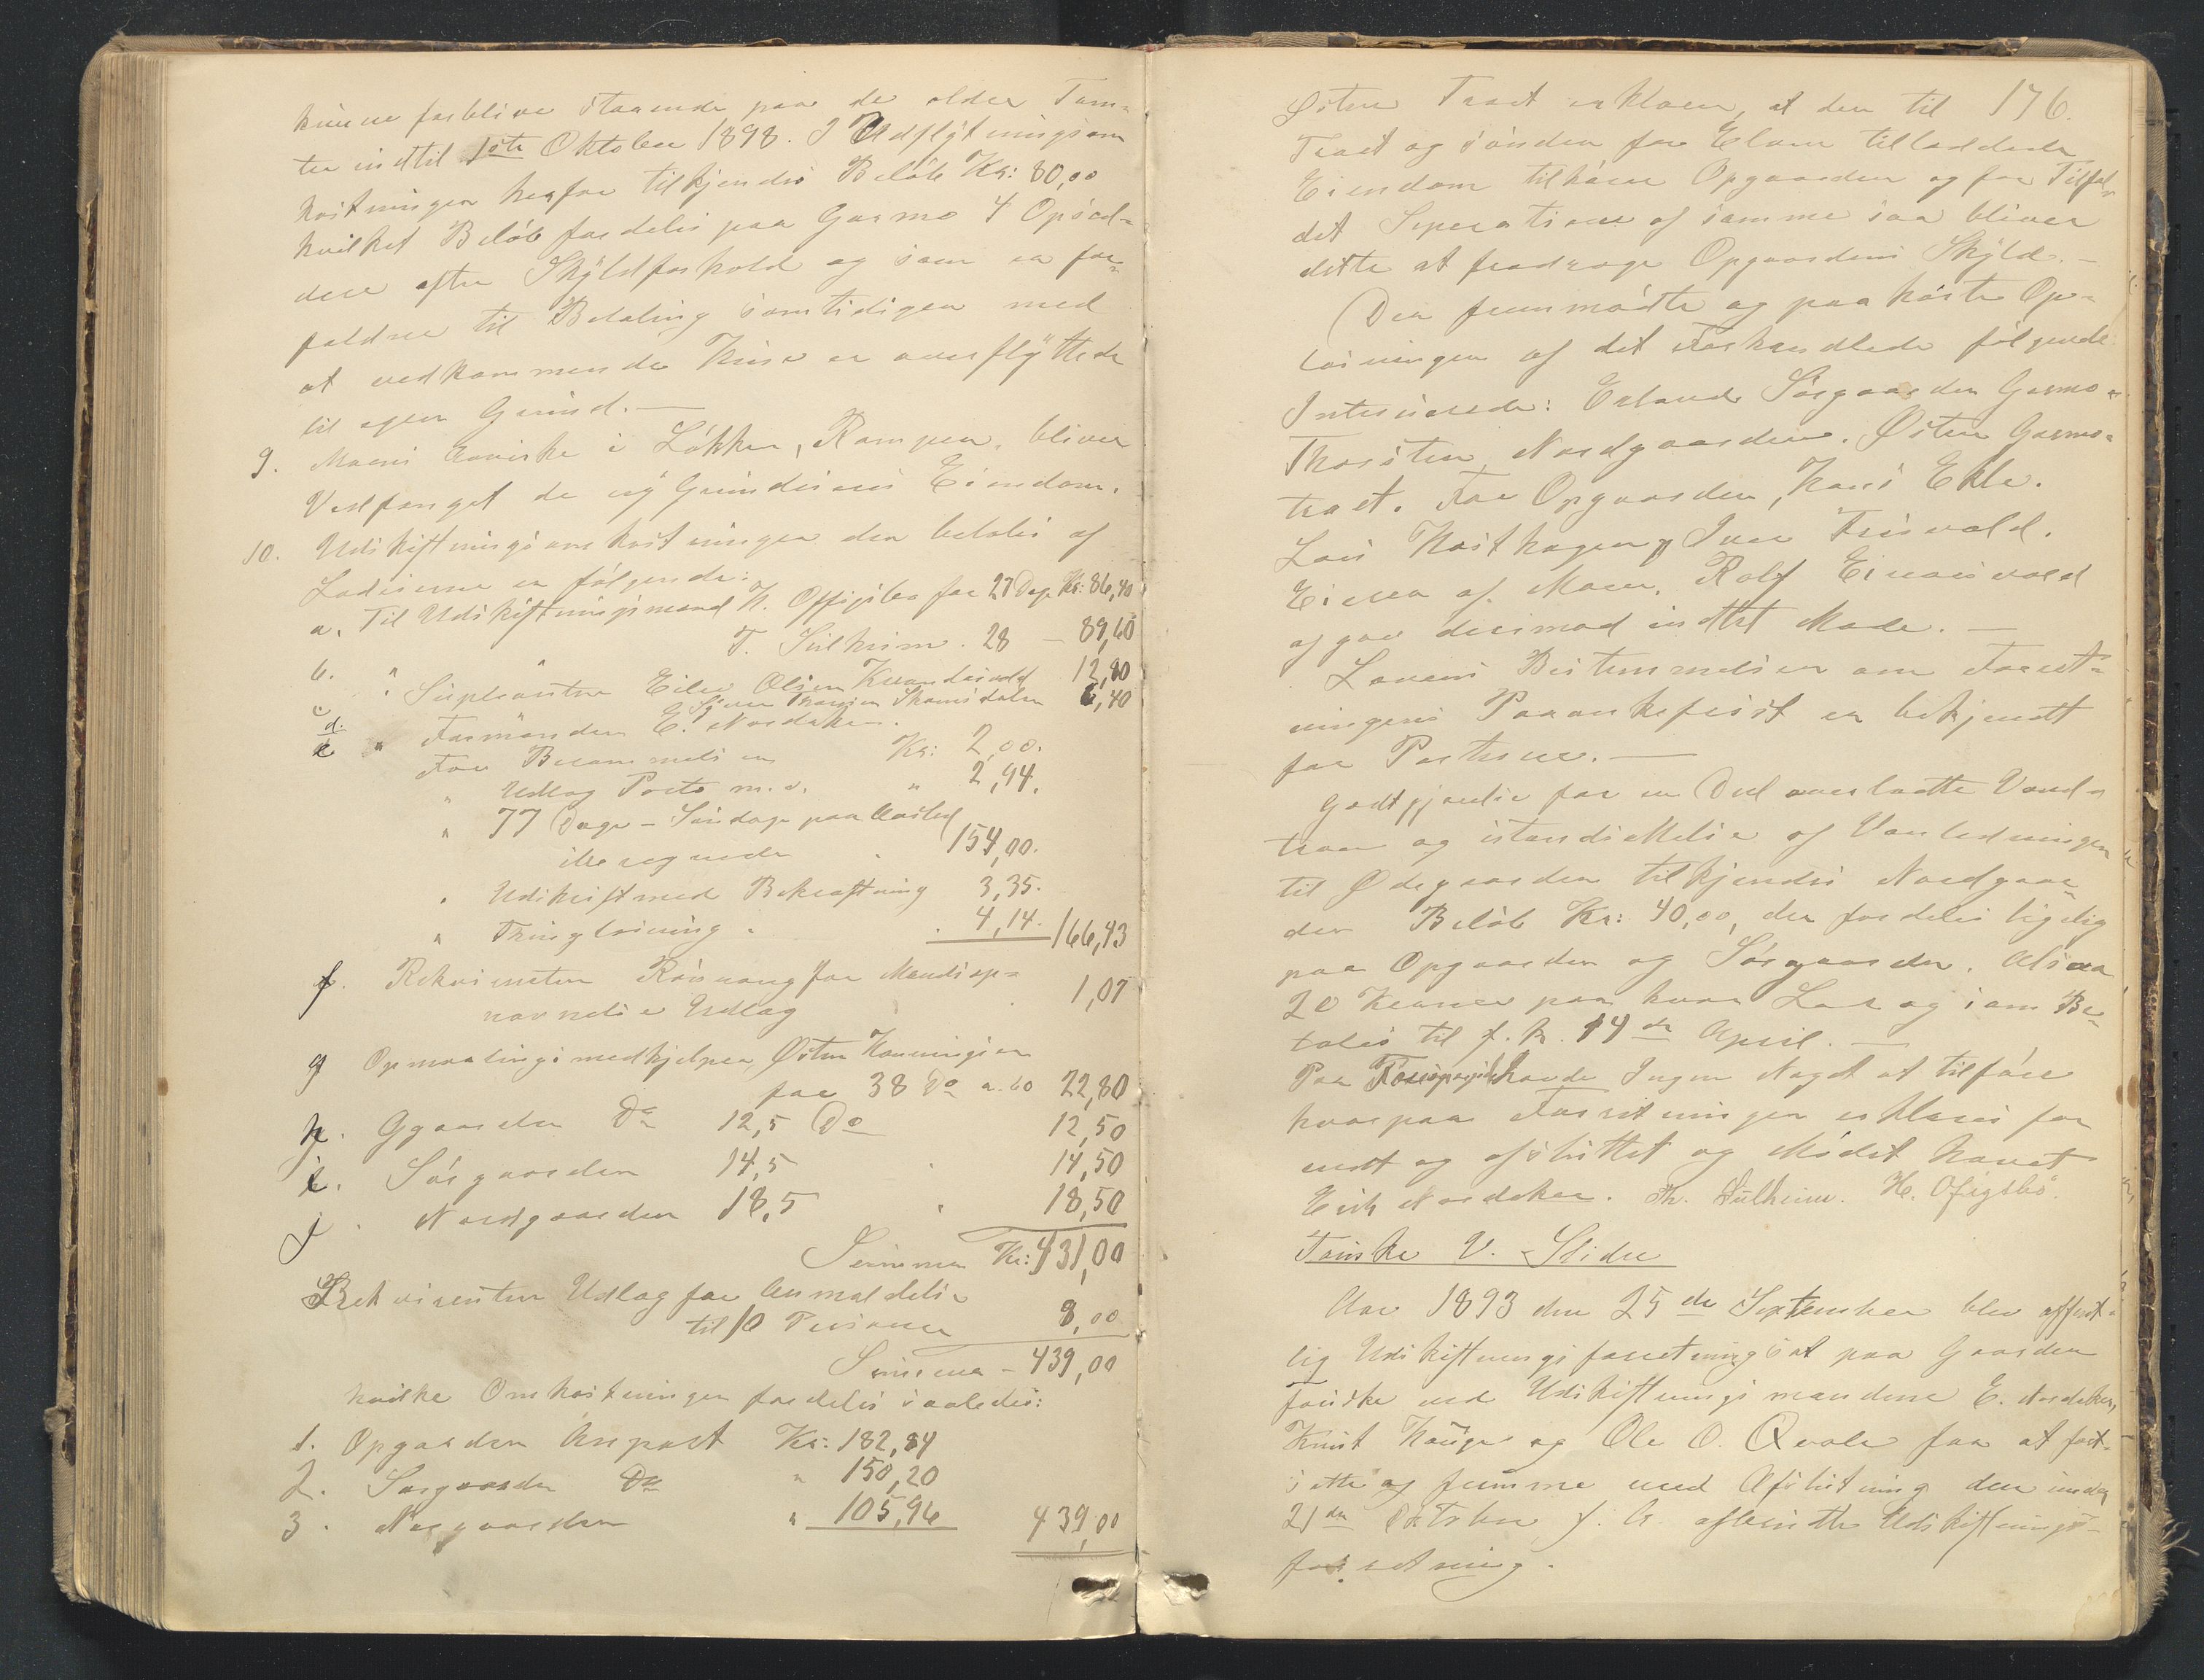 kunne forblive staaende paa de alder Tom-
ter indtil 1ste Oktober 1898. I Udflytningsom
kostninger herfor tilkjendes Beløb Kr: 80,00
hvilket Beløb fordeles paa Garmo 4 Opsid-
dere efter Skyldforhold og som er for-
falden til Betaling samtidigen med
at vedkommende Huse er overflyttede
til egen Grund. —
9. Moens i Løkken, Rampen, bliver
Vedfanget de ny Grundeieres Eiendom.
10. Udskiftningsomkostninger der betales af
Lodeierne er følgende:
a. Til Udskiftningsmand H. Offigsbø for 27 Dage Kr: 86,40
b. " " T. Sulheim. 28 — 89,60
c " Supleanten Eilev Olsen Kvandesvold 12,80
d. Iver Hansen Skamsdalen 6,40
e " Formanden E. Nordaker.
For Berammelsen Kr: 2,00.
" Udlag Porto m.v. " 2,94.
" 77 Dage - Søndage paa Aasted
iberegnede . 154,00.
. Udskrift med Bekræftning 3,35.
" Thinglæsning . . 4,14. 166,43
f. Rekvirenten Røisvang for Mandsop-
nævnelse Udlag . 1,07
g Opmaalingsmedhjelper, Østen Henningsen
for 38 Do a. 60 22,80
h. Ggaarden Do 12,5 Do 12,50
i. Sørgaarden 14,5 . 14,50
j. Nordgaarden 18,5 " 18,50
Summa Kr: 431,00
Rekvirenten Udlag for Anmeldelse
til 10 Personer 8,00
Summa - 439,00
hvilke Omkostninger fordeles saaledes:
1. Opgaarden Anpart Kr: 182,84
2. Sørgaarden Do " 150,20
3. Norgaarden " 105,96 439,00
176.
Østen Træet erklærer, at den til
Træet og sønden for Elven tilladdede
Eiendom tilhører Opgaarden og for Tilfæl-
det Seperation af samme saa bliver
dette at fradrage Opgaardens Skyld. —
Der fremmødte og paahørte Op-
læsningen af det Forhandlede følgende
Interesserede: Erland Sørgaarden Garmo -
Thorsten Nordgaarden. Østen Garmo-
træet. For Opgaarden, Hans Ekle.
Lars Kosthagen, Iver Trisvold.
Einer af Moen. Rolf Einarsvold
afgav desimod intet Møde. —
Lovens Bestemmelser om Forret-
ningens Paaankefrist er bekjendt
for Parterne. —
Godtgjørelse for en Deel overladte Vand-
traa og istandsættelse af Vanledningen
til Ødegaarden tilkjendes Nordgaar-
den Beløb Kr: 40,00, der fordeles ligelig
paa Opgaarden og Sørgaarden. Alsaa
20 Kroner paa hver Lod og som Be-
tales til f. k. 14de April. —
Paa Forespørgsel havde Ingen Noget at tilføre
hvorpaa Forretningen erklæres for
endt og afsluttet og Mødet hævet
Erik Nordaker. Th. Sulheim. H. Ofigsbø.
Fonske V. Slidre
Aar 1893 den 25de September blev affent-
lig Udskiftningsforretning sat paa Gaarden
Fonske ved Udskiftningsmændene E. Nordaker,
Knut Hauge og Ole O. Qvale for at fort-
sætte og fremme med Afslutning den under
21de Oktober f. A. afbrudte Udskiftnings-
forretning.